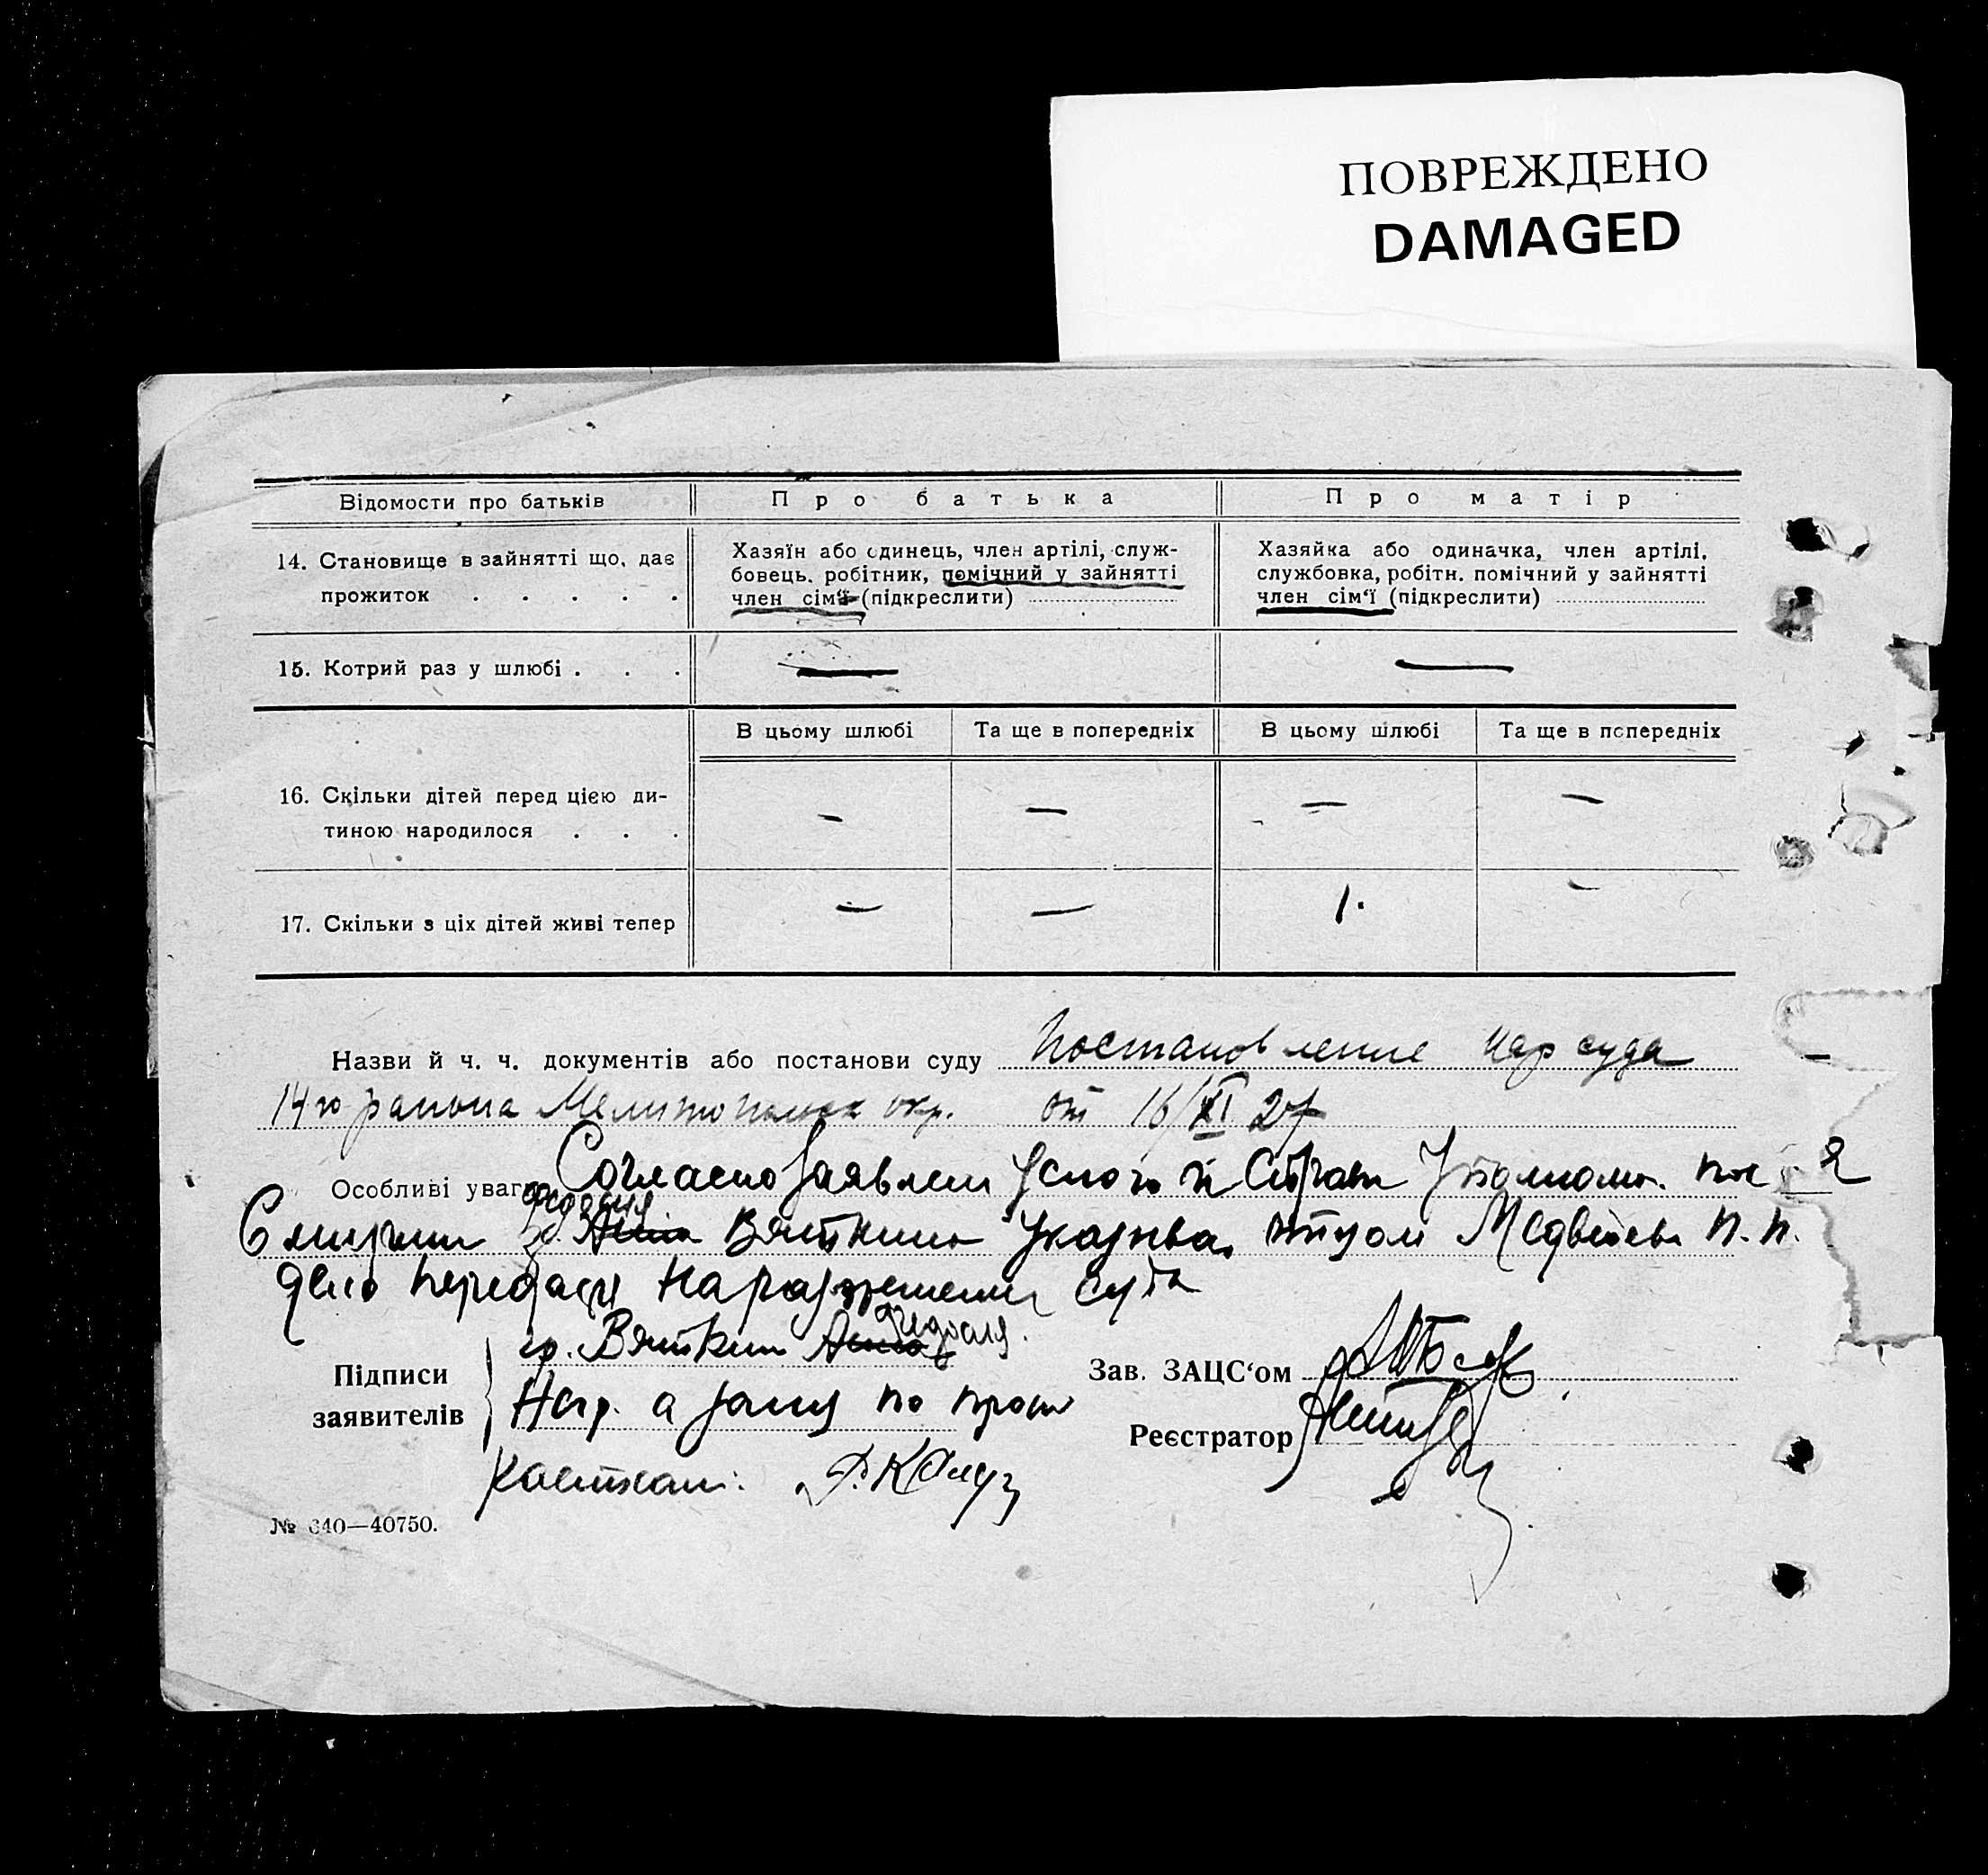 ПОВРЕЖДЕНО
DAMAGED
Відомости про батьків
Про батька
Про матір
14. Становище в зайнятті що, дає
прожиток . . . . .
Хазяїн або одинець, член артілі, служ-
бовець. робітник, помічний у зайнятті
член сім'ї (підкреслити)
Хазяйка або одиначка, член артілі,
службовка, робітн. помічний у зайнятті
член сім'ї (підкреслити)
15. Котрий раз у шлюбі . . .
—
—
В цьому шлюбі
Та ще в попередніх
В цьому шлюбі
Та ще в попередніх
16. Скільки дітей перед цією ди-
тиною народилося . . .
— — — —
17. Скільки з ціх дітей живі тепер
— — 1. —
Назви й ч. ч. документів або постанови суду Постановление нар суда
14 го района Мелитопольск окр. от 16/XI 27
Особливі уваги Согласно заявлен
Федосия
Вяткина указыва отцом Медведева П. П.
дело передася на разрешение суда
Підписи
заявителів
гр. Вяткин Федосия.
Негр. а за нея по прось
Зав. ЗАЦС'ом
Реєстратор
№ 640—40750.